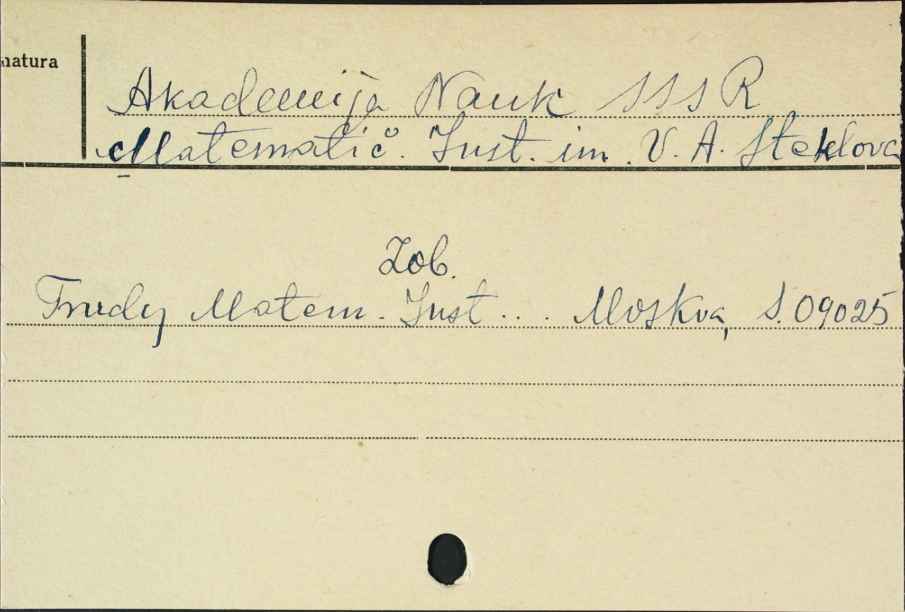 natura
Akademija Nauk SSSR
Matematič. Inst. im. V. A. Steklova
Zob.
Trudy Matem. Inst... Moskva, S. 09025